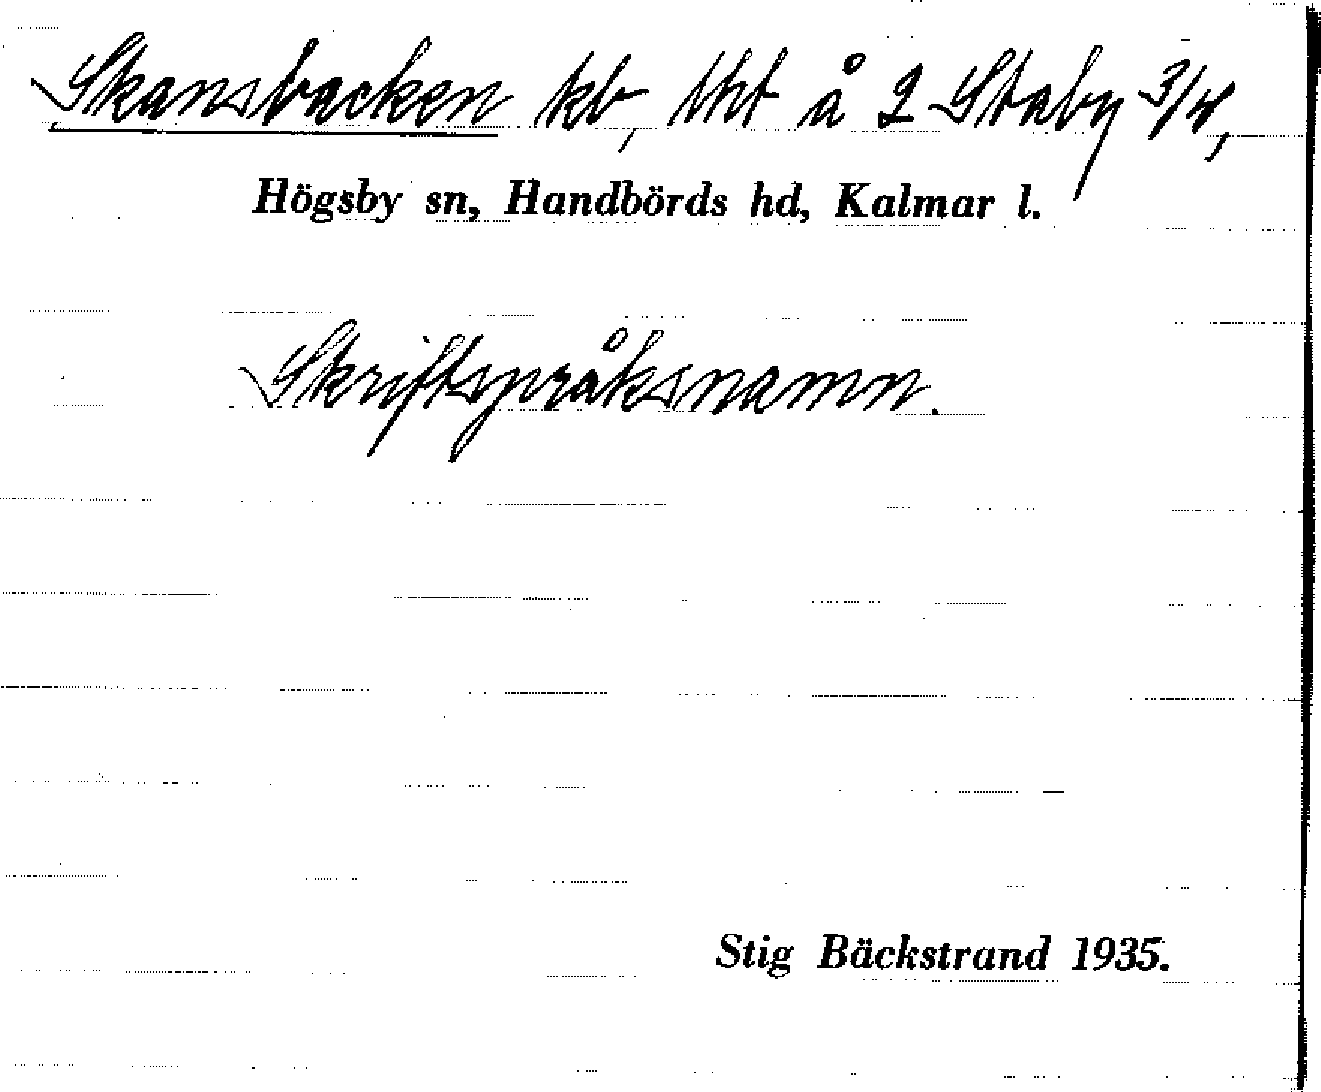 Skansbacken kb, tht å 2 Staby 3/4,
Högsby sn, Handbörds hd, Kalmar l.
Skriftspråksnamn.
Stig Bäckstrand 1935.